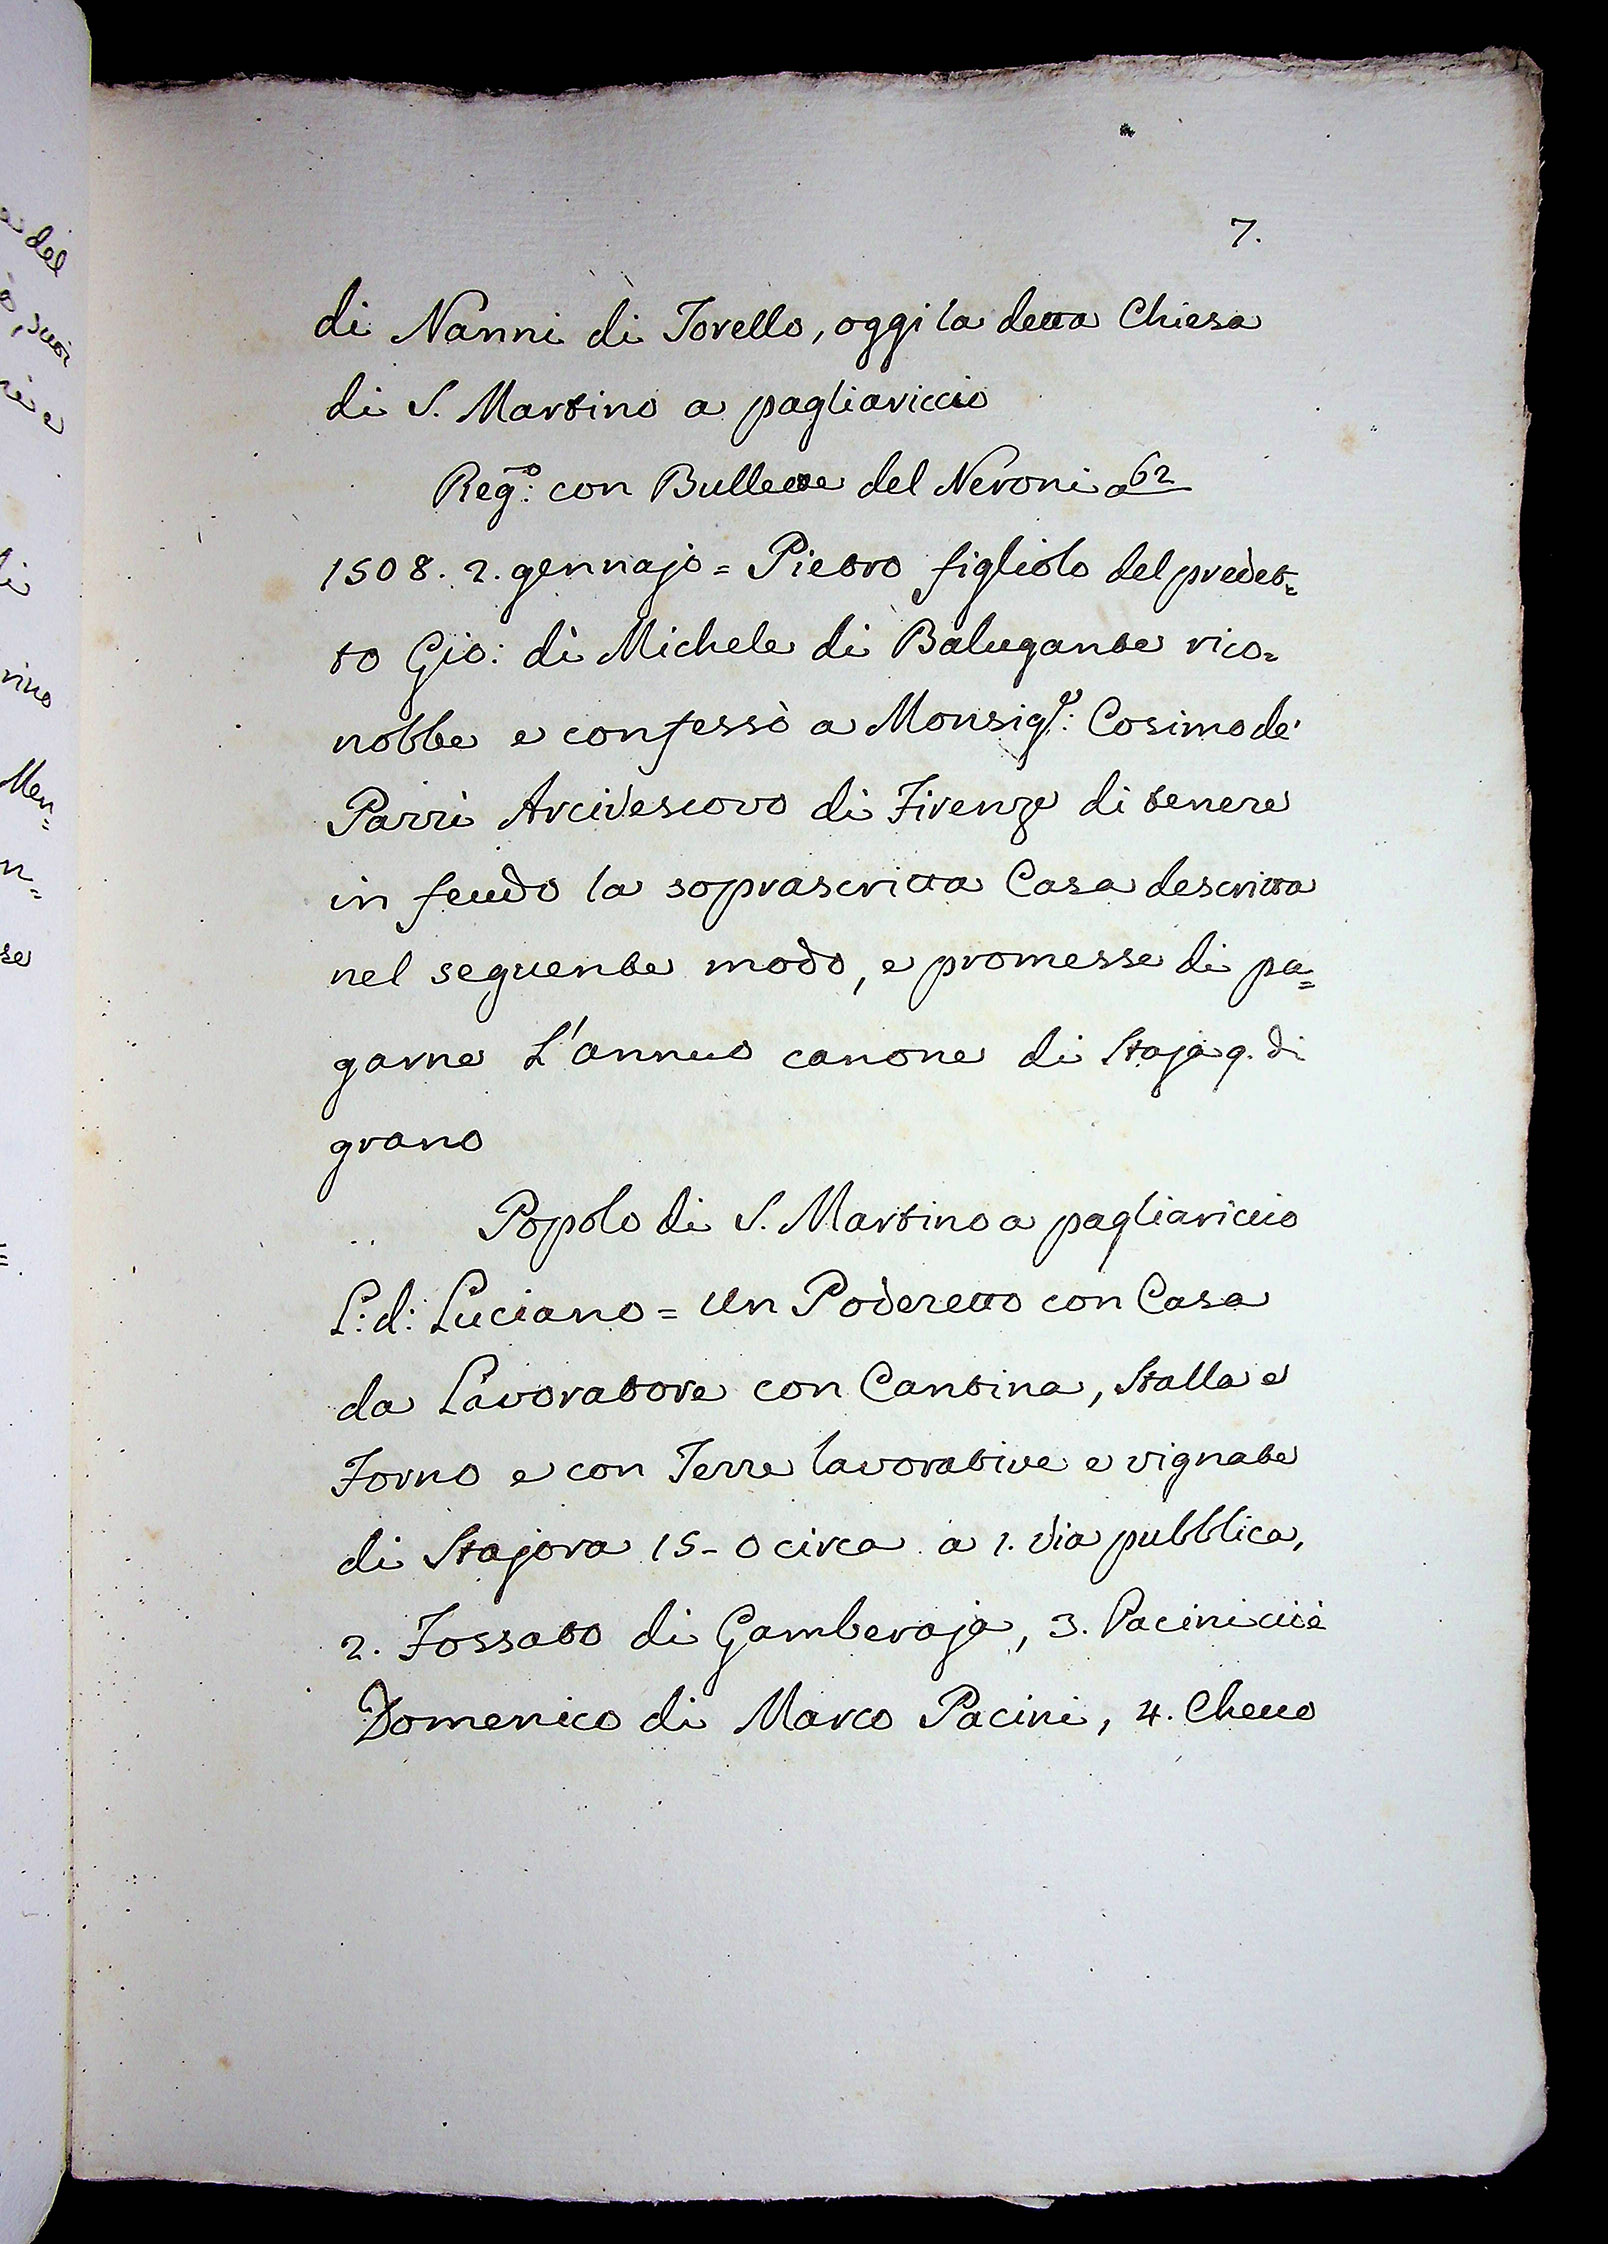 7.
di Nanni di Torello, oggi la detta Chiesa
di S. Martino a pagliariccio
Reg:º con Bullette del Neroni a 62
1508. 2. gennajo = Pietro figliolo del predet=
to Gio: di Michele di Balugante rico=
nobbe e confessò a Monsigr: Cosimo de'
Pazzi Arcivescovo di Firenze di tenere
in feudo la soprascritta Casa descritta
nel seguente modo, e promesse di pa=
garne L'annuo canone di Staja 9. di
grano
Popolo di S. Martino a pagliariccio
L: d: Luciano = Un Poderetto con Casa
da Lavoratore con Cantina, Stalla e
Forno e con Terre lavorative e vignate
di Stajora 15-0 circa a 1. via pubblica,
2. Fossato di Gamberaja, 3. Pacini cioè
Domenico di Marco Pacini, 4. Checco